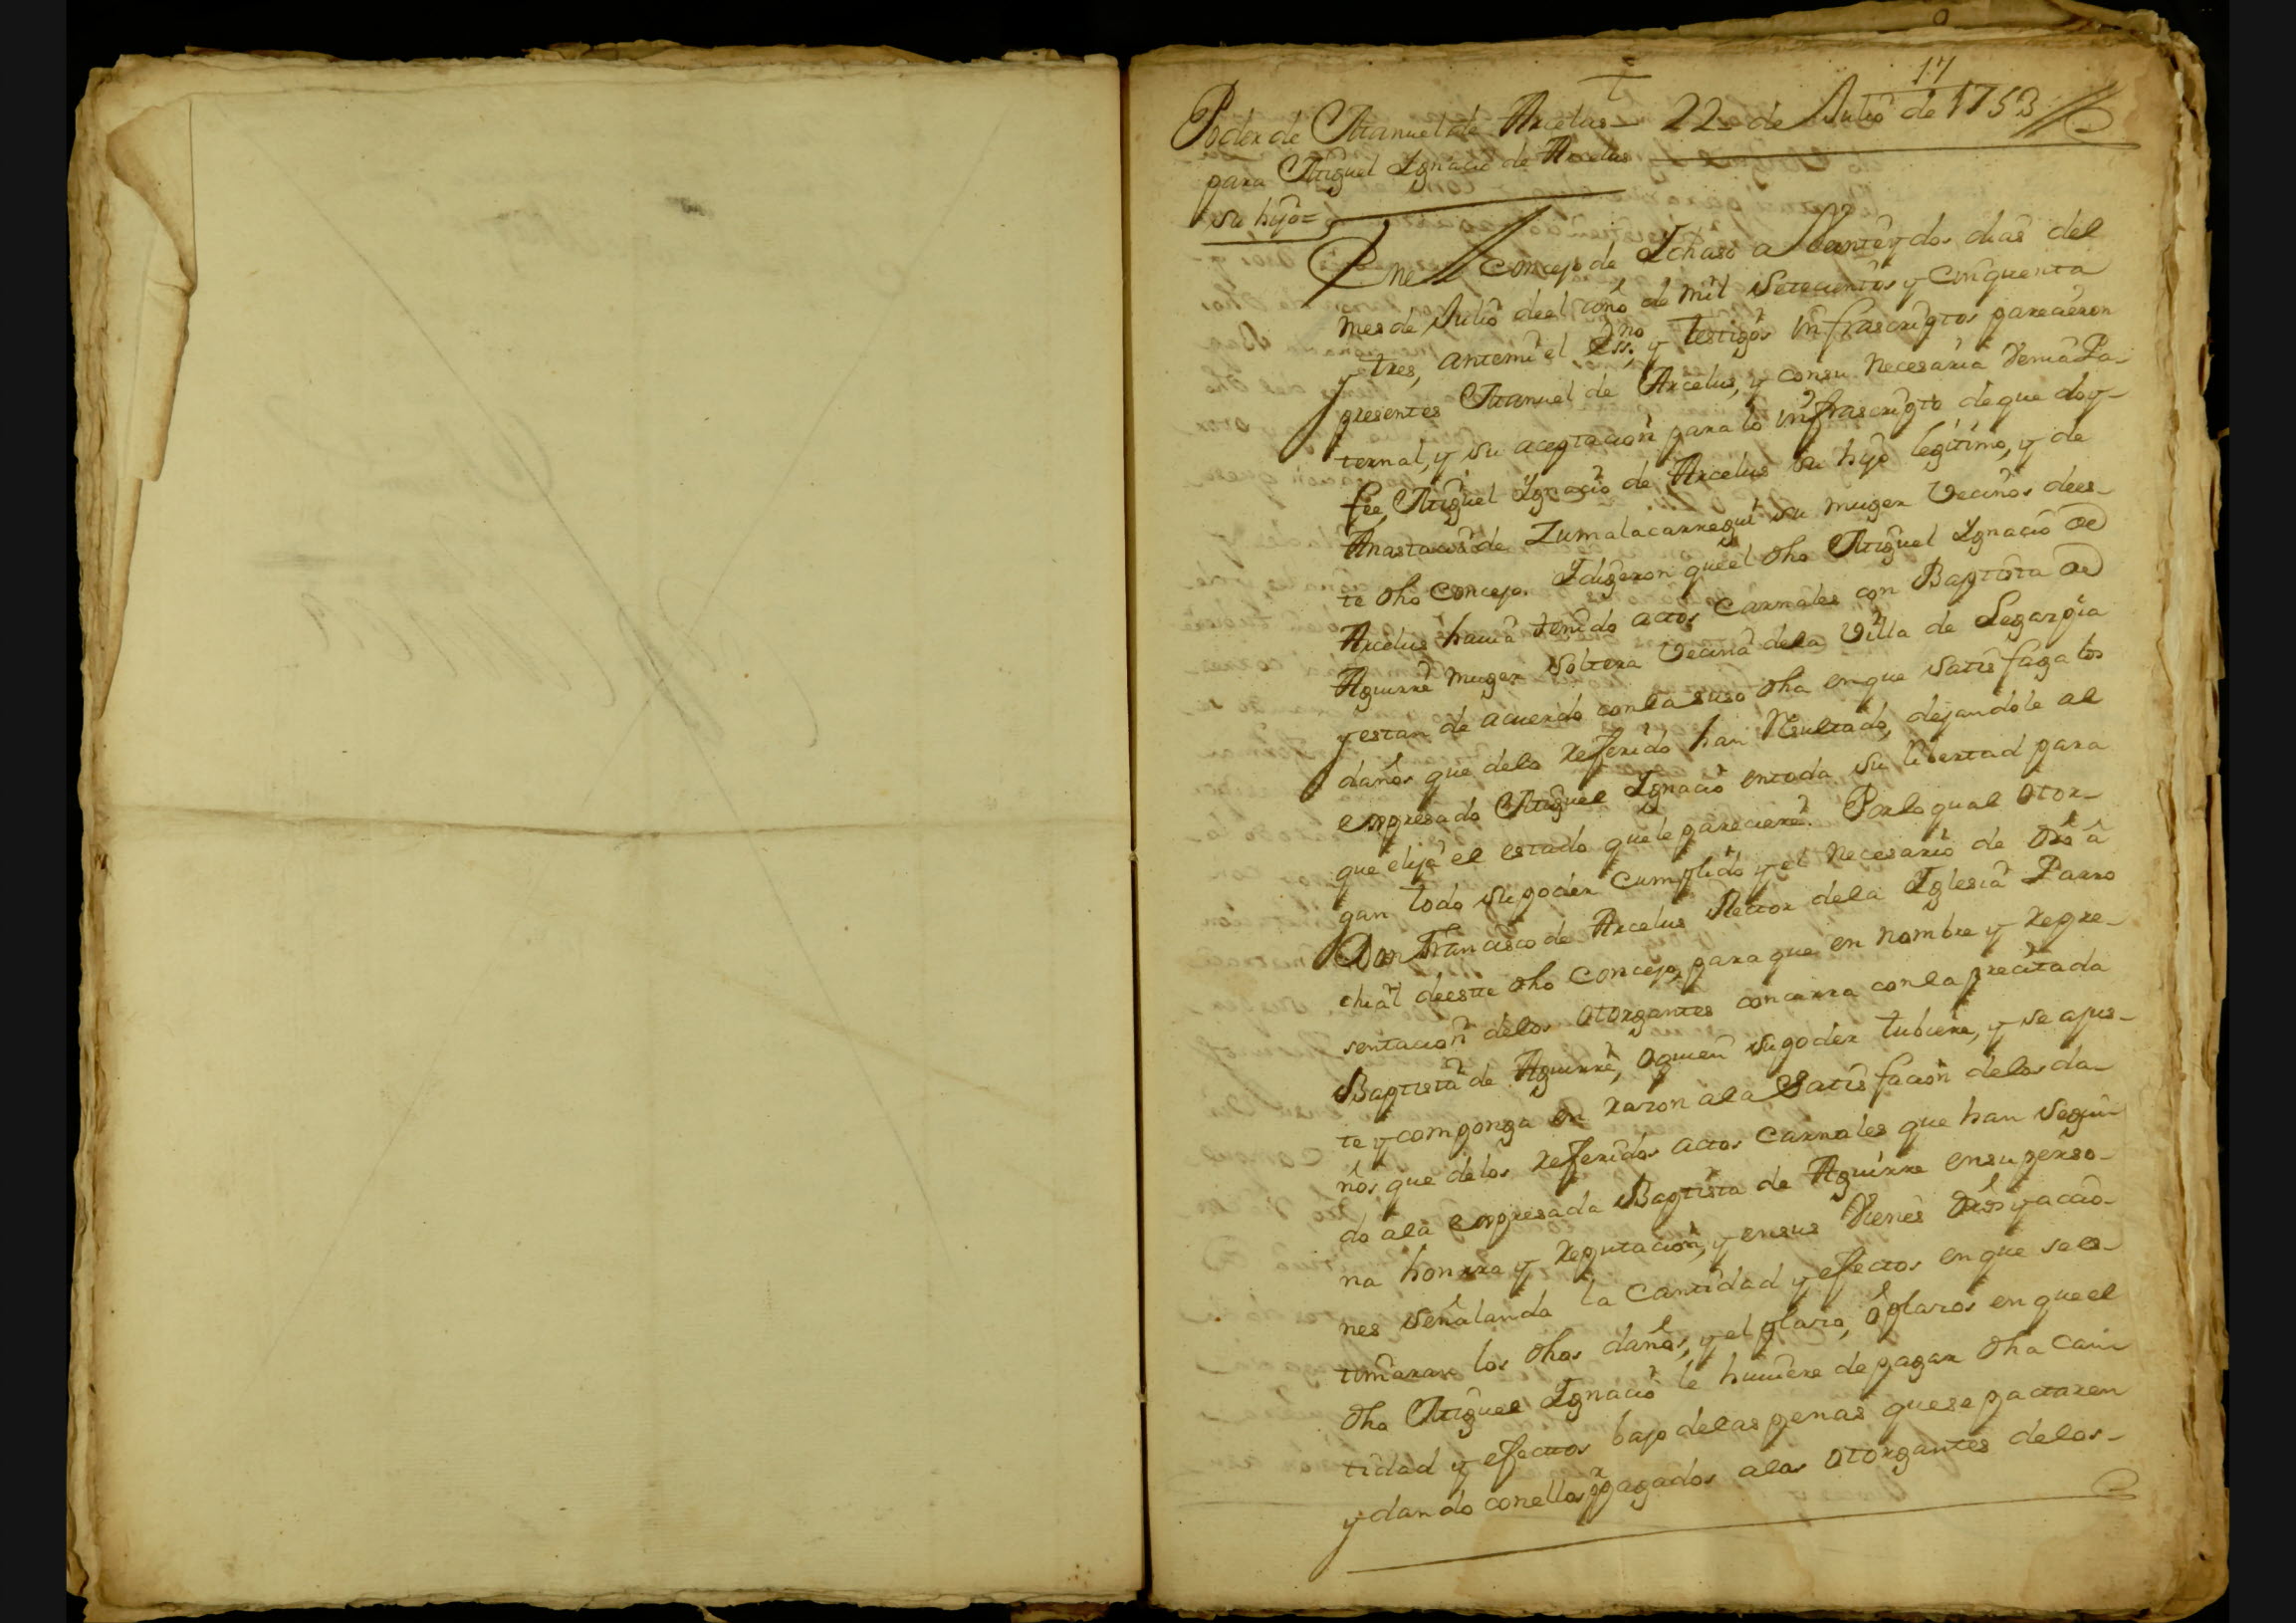 17
Poder de Manuel de Arcelus 22 de Julio de 1753
para Miguel Ignacio de Arcelus
su hijo =
Enel Concejo de Ichaso a Veinte y dos dias del
mes de Julio deel año de mil setecientos y cinquenta
y tres, antemi el Essno y testigos infrascriptos parecieron
presentes Manuel de Arcelus, y consu necesaria Venia Pa-
ternal, y su aceptacion para lo infrascripto deque doy
fee, Miguel Ignacio de Arcelus su hijo legitimo, y de
Anastacia de Zumalacarregui su muger Vecinos dees-
te dho Concejo. Y digeron queel dho Miguel Ignacio de
Arcelus havia tenido actos Carnales con Baptista de
Aguirre muger soltera Vecina dela Villa de Legazpia
y estan de acuerdo conla suso dha enque satisfaga los
daños que delo referido han resultado, dejandole al
expresado Miguel Ignacio entoda su libertad para
que elija el estado quele pareciere. Porloqual otor-
gan todo supoder cumplido y el necesario de dro â
Don Francisco de Arcelus Rector dela Iglesia Parro
chial deeste dho Concejo, paraque en nombre y repre-
sentacion delos otorgantes concurra conla precitada
Baptista de Aguirre, oquien supoder tubiere, y se ajus-
te y componga en razon ala Satisfacion delos da-
ños que delos referidos actos Carnales que han segui-
do ala expresada Baptista de Aguirre ensu perso-
na honrra y reputacion, y ensus Vienes dros y accio-
nes señalando la Cantidad y efectos enque se es-
timaren los dhos daños, y el plazo, ô plazos en queel
dho Miguel Ignacio le huviere de pagar dha Can-
tidad y efectos bajo delas penas quese pactaren
y dando conellos pagados alos otorgantes delos-